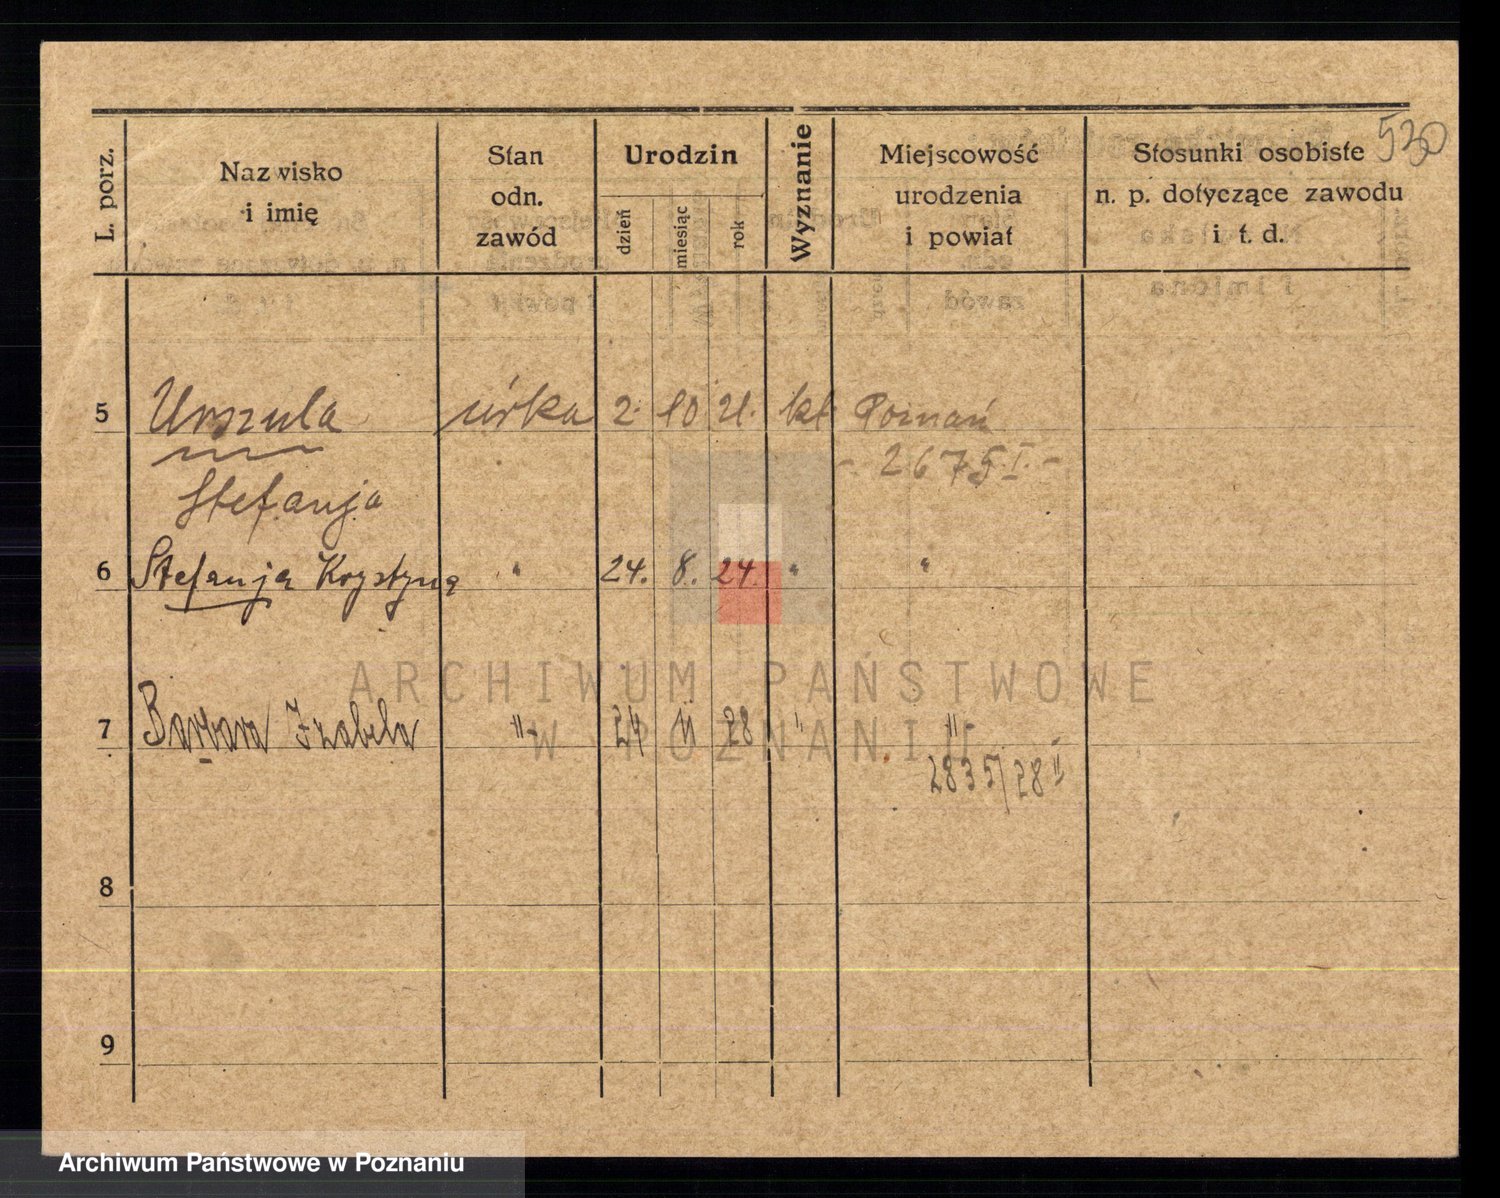 530
L. porz.
Nazwisko
i imię
Stan
odn.
zawód
Urodzin
dzień
miesiąc
rok
Wyznanie
Miejscowość
urodzenia
i powiat
Stosunki osobiste
n. p. dotyczące zawodu
i t. d.
5 Urszula córka 2. 10 21. kt. Poznań
- 2675 I. -
Stefanja
6 Stefanja Krystyna " 24. 8. 24. " "
ARCHIWUM PAŃSTWOWE
W POZNANIU
7 Barbara Izabela "- 24 11 28 " "
2835/28 II
8
9
Archiwum Państwowe w Poznaniu